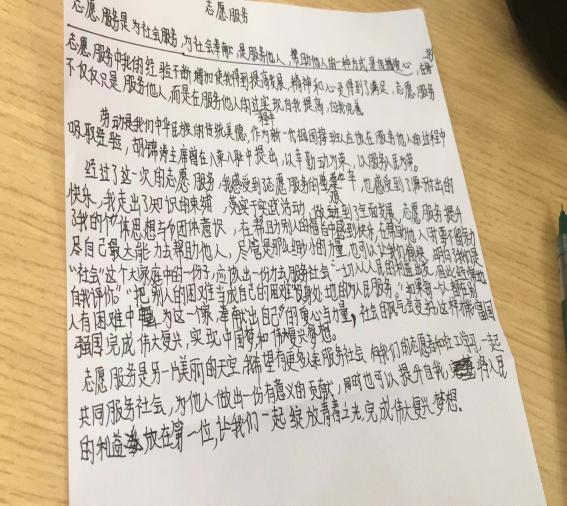 志愿服务
志愿服务是为社会服务，为社会奉献，是服务他人，帮助他人的一种方式，是传播爱心，
志愿服务中我的经验不断增加使我得到提高发展，精神和心灵得到了满足，志愿服务
不仅仅只是服务他人，而是在服务他人的过程中实现自我提高，自我完善。
劳动是我们中华民族的传统美德，作为新一代祖国接班人应该在服务他人的过程中
吸取经验，胡锦涛主席曾在八荣八耻中提出，以辛勤劳动为荣，以服务人民为荣。
经过了这一次的志愿服务，我感受到志愿服务的，也感受到了付出的
快乐，我走出了知识的束缚，实践活动，做到了全面发展，志愿服务提升
了我的个体思想与团体意识，在帮助别人的
尽自己最大能力去帮助他人，尽管是那么细小的力量，也可以让我们愉快，
“社会”这个大家庭中的一份子，应该出一份力去服务社会，一切从人民的利益出发，
自我评价。”把别人的困难当成自己的困难”的为人民服务，
人有困难中，为这一家奉献出自己的爱心与力量，社会风气会变
强国完成伟大复兴，实现中国梦和伟大复兴梦想。
志愿服务是另一片美丽的天空，我希望有更多人来服务社会，向我们的志愿者和社工学习，一起
共同服务社会，为他人做出一份有意义的贡献，同时也可以提升自我，将人民
的利益放在第一位，让我们一起绽放青春之光，完成伟大复兴梦想。